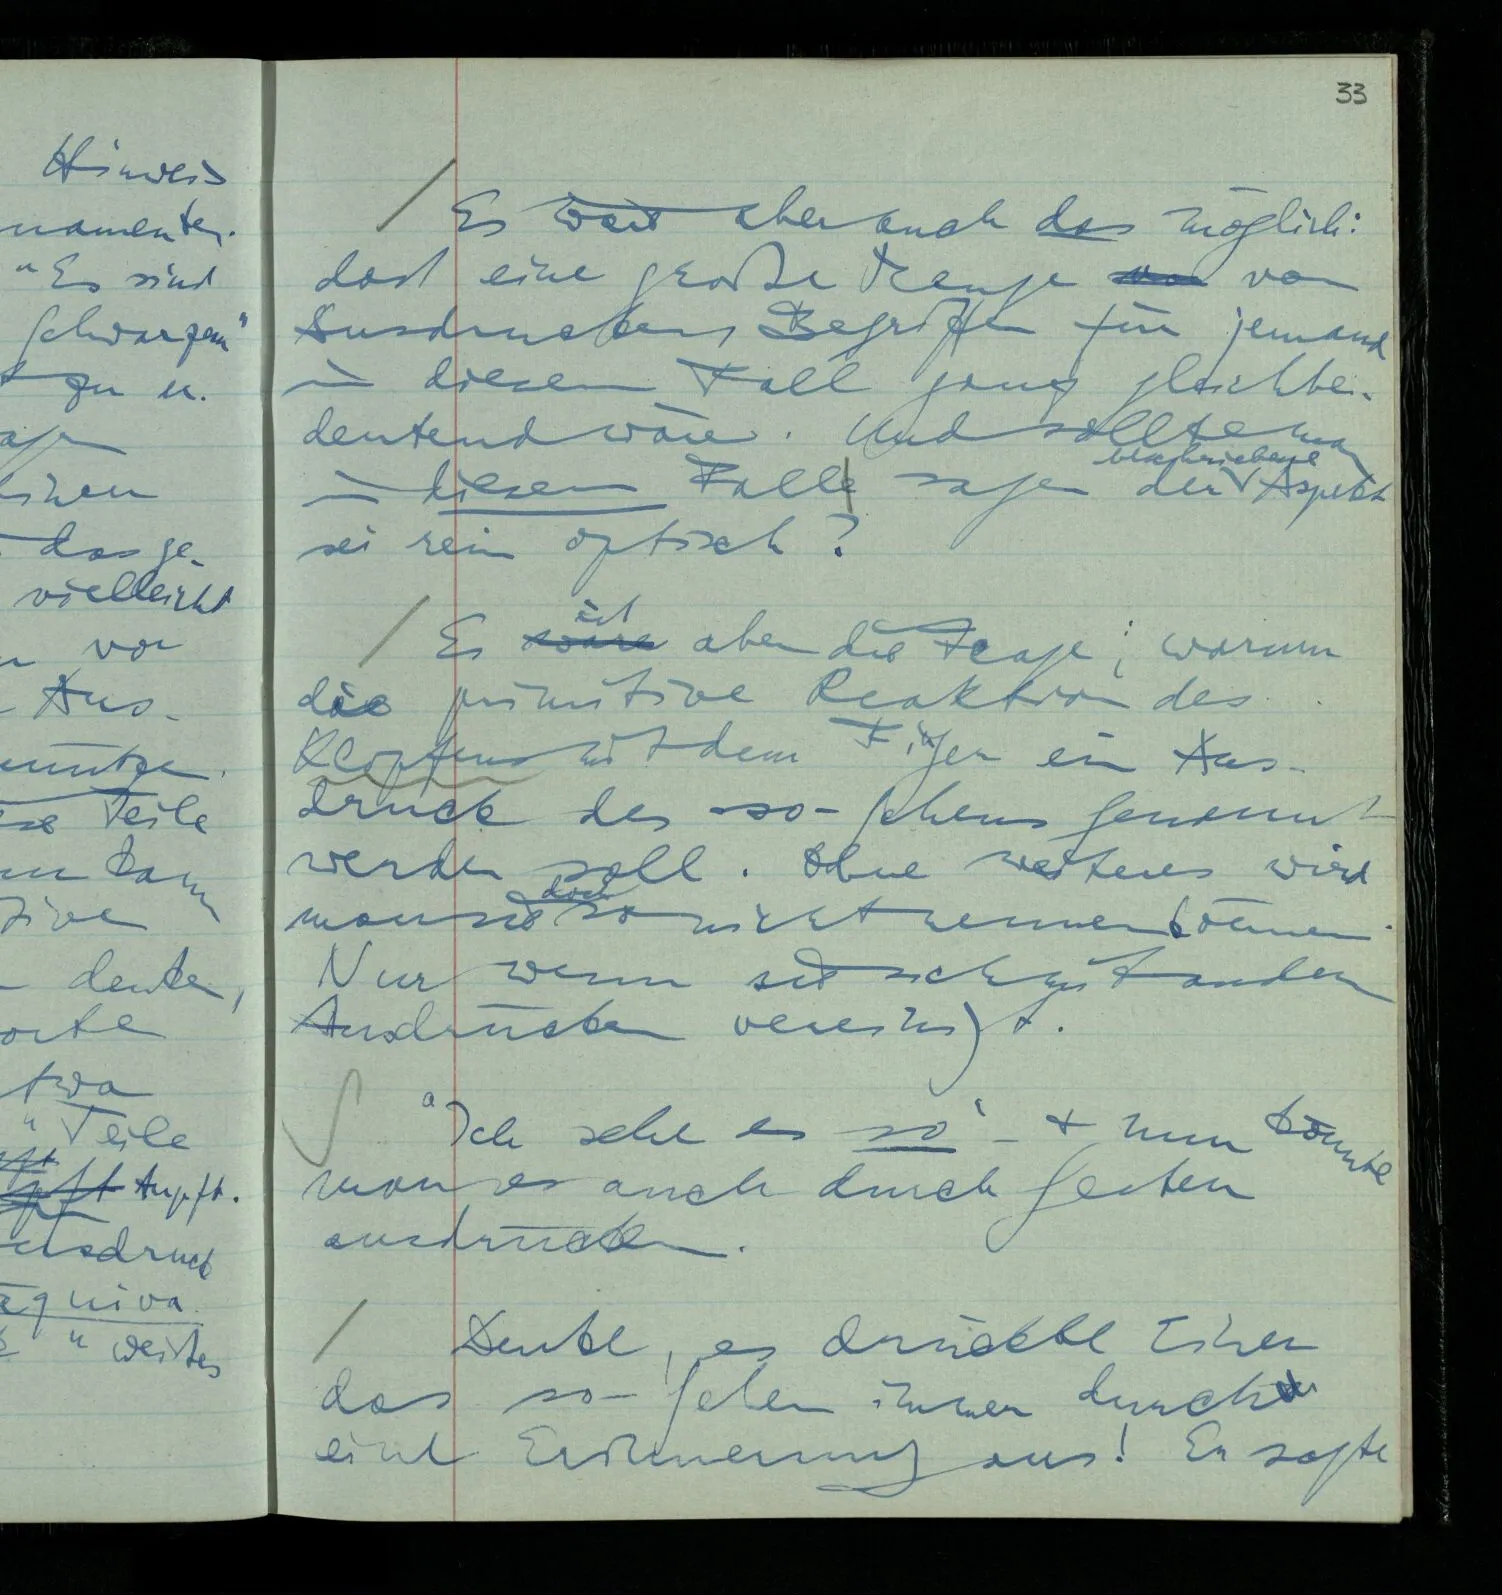 Hinweis
namenten.
"Es sind
Schwarzen"
zu u.
das ge-
vielleicht
von
Aus-
Teile
kann
denken,
Worte
etwa
" Teile
knüpft.
Ausdruck
äquiva
" weites
33
/ Es wäre aber auch das möglich:
daß eine große Menge von von
Ausdrucken, Begriffen für jemand
in diesem Fall ganz gleichbe-
deutend wäre. Und sollte man
in diesem Falle sagen der beschriebene Aspekt
sei rein optisch?
/ Es wäre ist aber die Frage, warum
die primitive Reaktion des
Klopfens mit dem Finger ein Aus-
druck des so-Sehens genannt
werden soll. Ohne weiteres wird
man sie doch so nicht nennen können.
Nur wenn sie sich mit andern
Ausdrücken vereinigt.
"Ich sehe es so" – + nun könnte
man es auch durch Gesten
ausdrücken.
/ Denke, es drückte Einer
das so-Sehen immer durch
eine Erinnerung aus! Er sagte